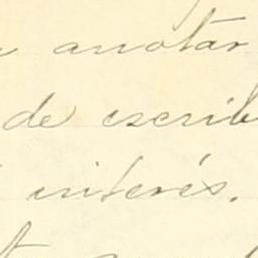 anotar
de escrib
interés.